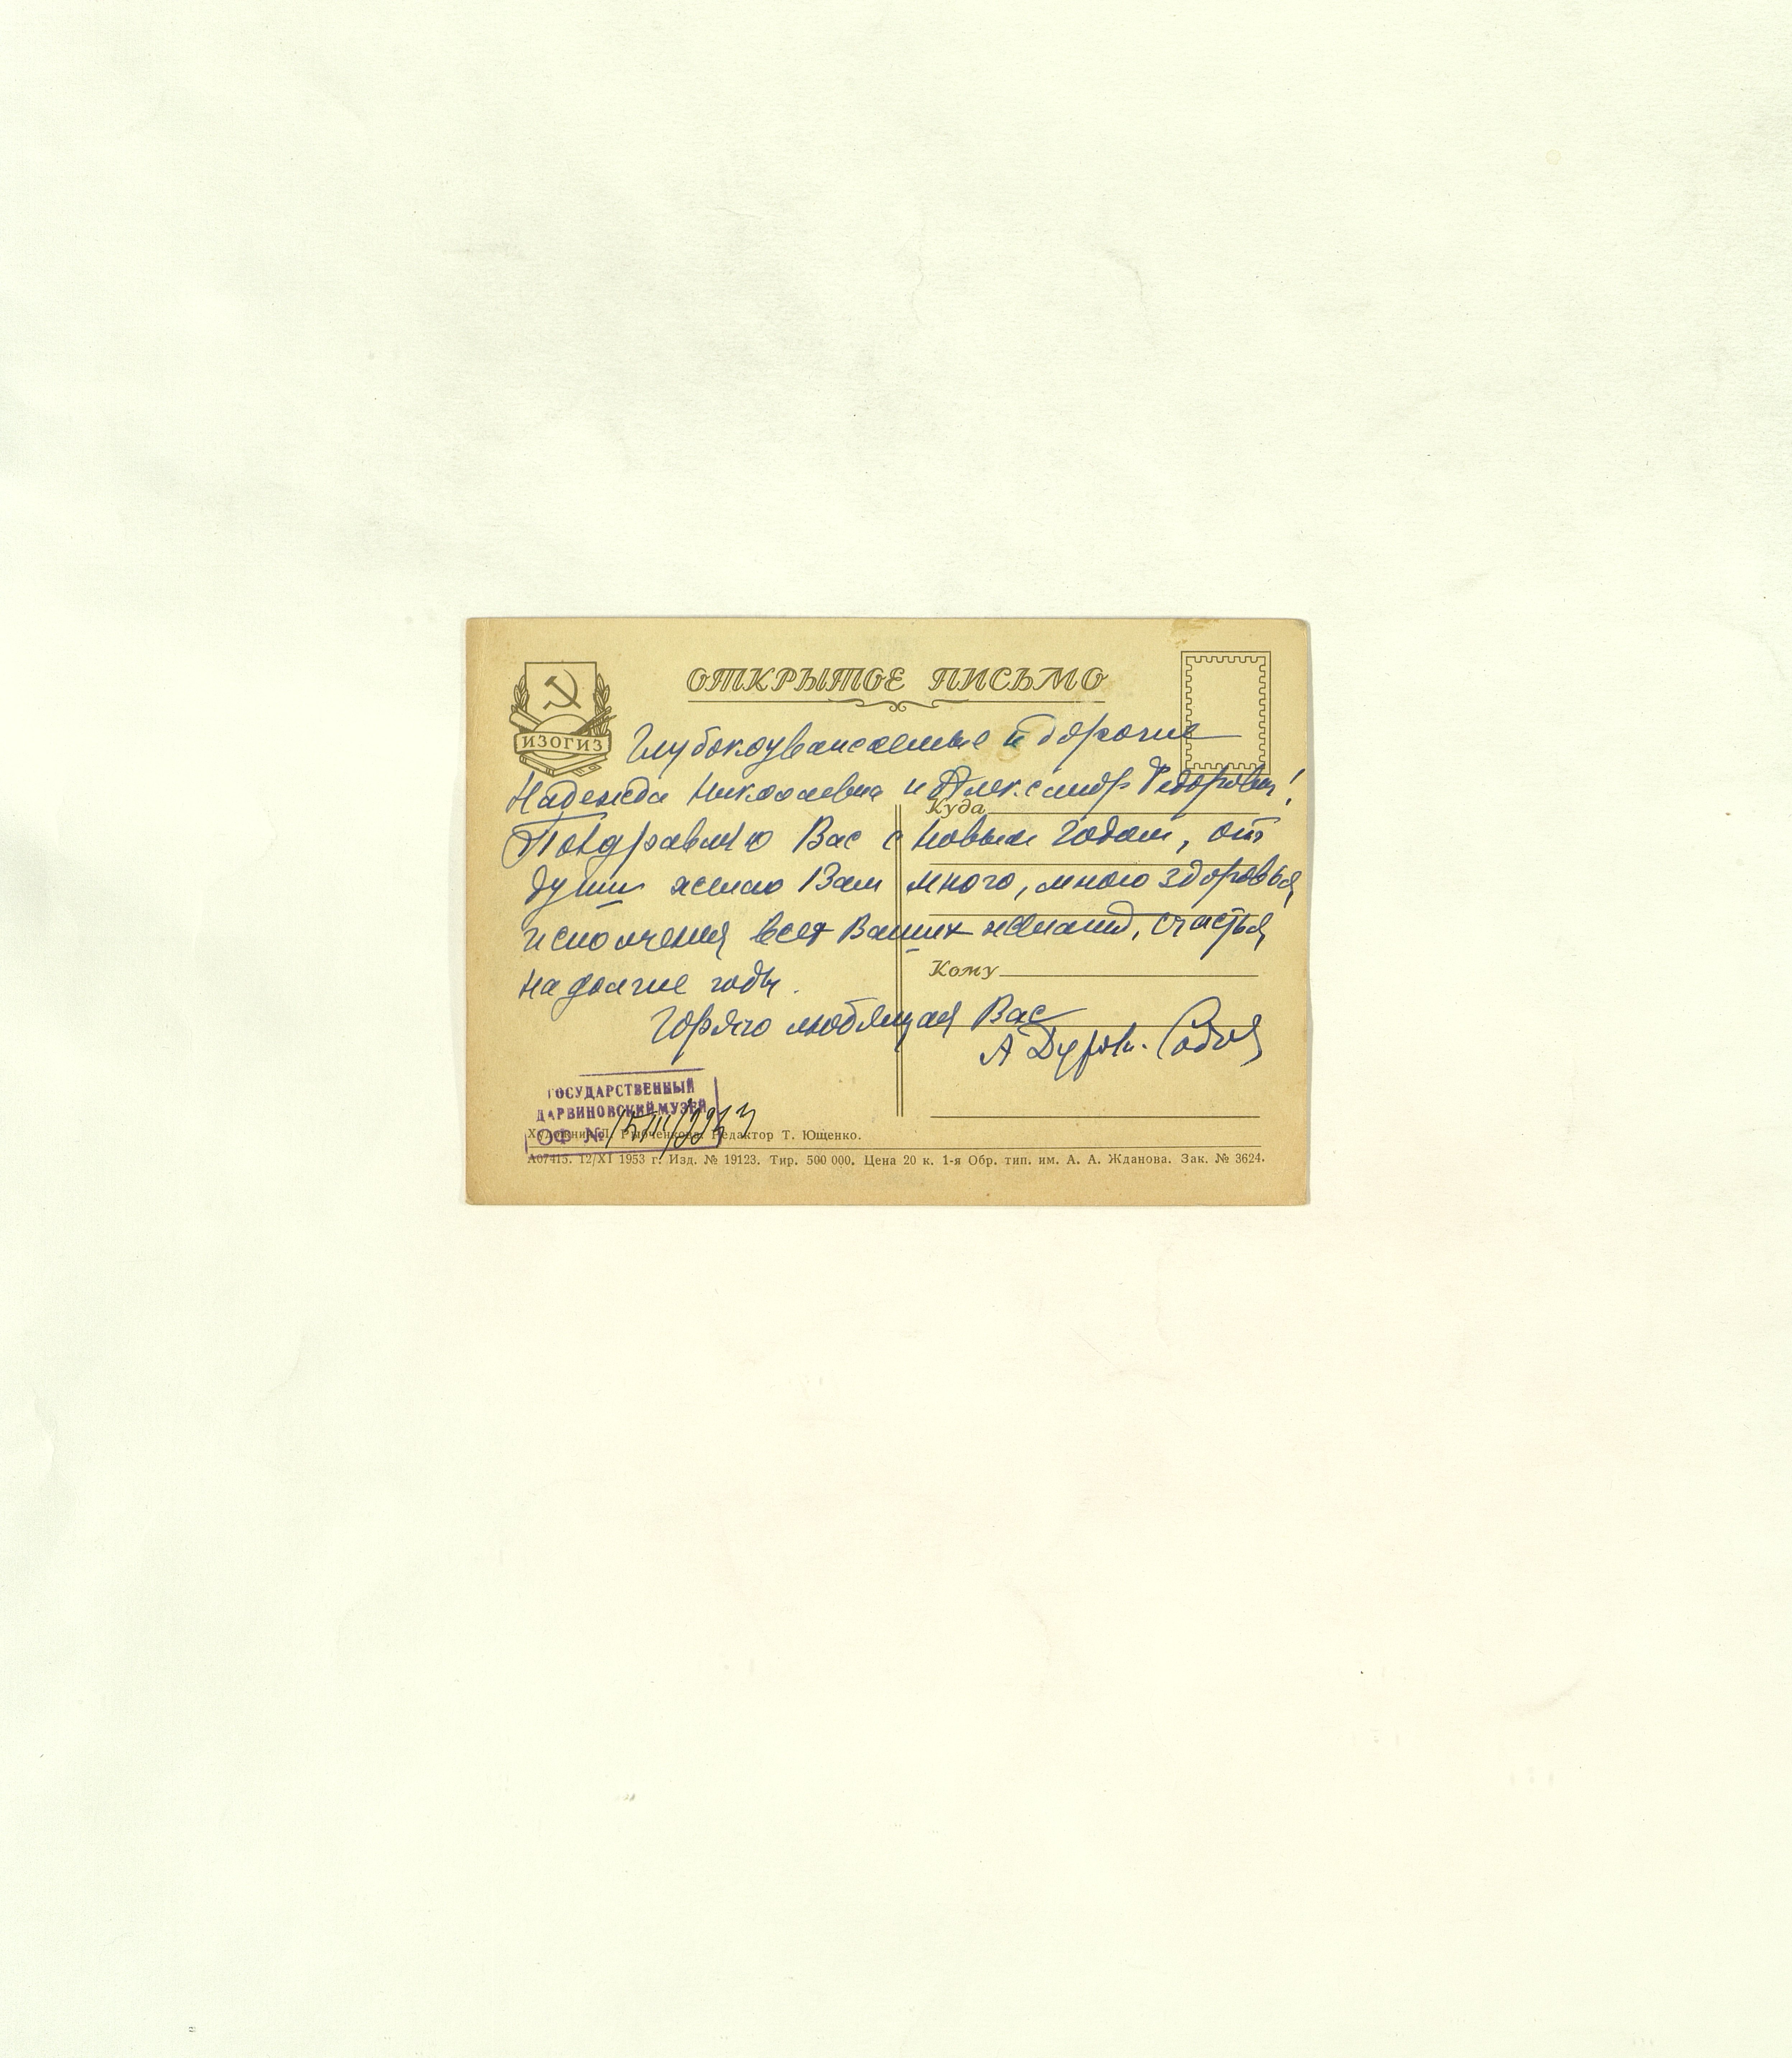 ОТКРЫТОЕ ПИСЬМО
ИЗОГИЗ
Глубокоуважаемые и дорогие
Надежда Николаевна и Александр Федорович!
Куда
Поздравляю Вас с новым годом, от
души желаю Вам много, много здоровья,
исполнения всех Ваших желаний, счастья,
на долгие годы.
Кому
Горячо любящая Вас
А Дурова-
ГОСУДАРСТВЕННЫЙ
ДАРВИНОВСКИЙ МУЗЕЙ
ОФ №
Художник Л. Рыбченкова. Редактор Т. Ющенко.
А07415. 12/XI 1953 г. Изд. № 19123. Тир. 500 000. Цена 20 к. 1-я Обр. тип. им. А. А. Жданова. Зак. № 3624.